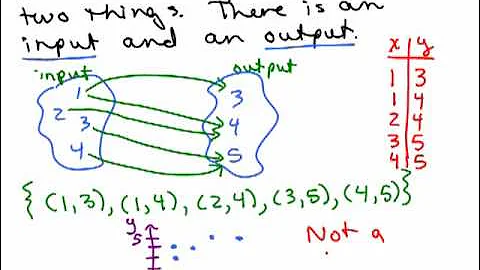 two things. There is an
input and an output.
input output
1
2
3
4
3
4
5
x y
1 3
1 4
2 4
3 5
4 5
{ (1,3), (1,4), (2,4), (3,5), (4,5)}
y
5
Not a